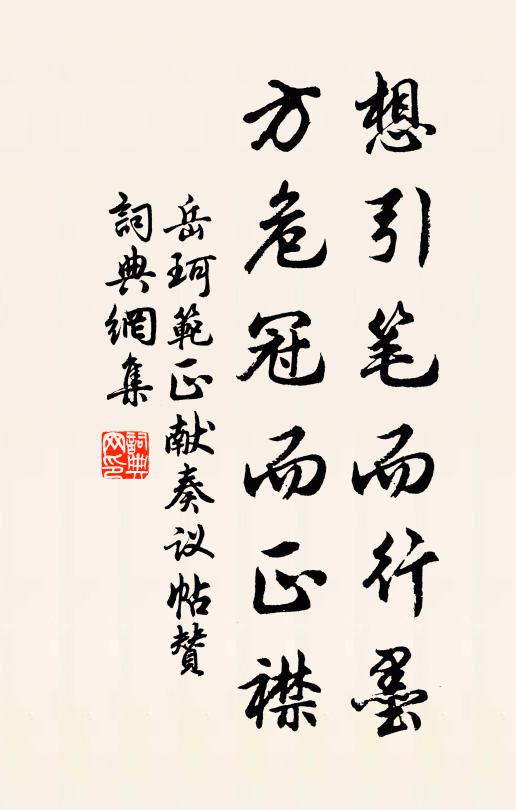 想引笔而行墨
方危冠而正襟
岳珂範正献奏议帖賛
詞典網集
詞典网印